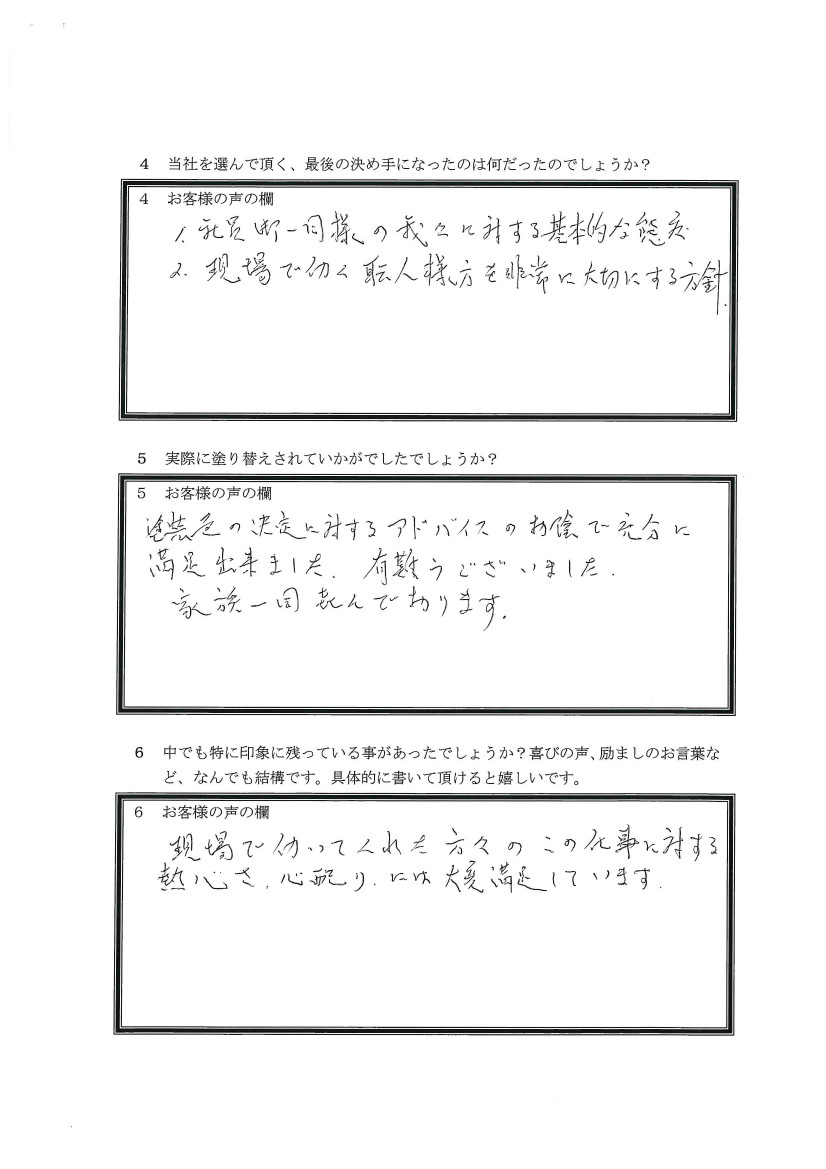 4 当社を選んで頂く、最後の決め手になったのは何だったのでしょうか？
4 お客様の声の欄
1. 社員 一同様の我々に対する基本的な態度
2. 現場で働く職人様方を非常に大切にする方針.
5 実際に塗り替えされていかがでしたでしょうか？
5 お客様の声の欄
塗装色の決定に対するアドバイスのお陰で充分に
満足出来ました. 有難うございました.
家族一同喜んで居ります.
6 中でも特に印象に残っている事があったでしょうか？喜びの声、励ましのお言葉な
ど、なんでも結構です。具体的に書いて頂けると嬉しいです。
6 お客様の声の欄
現場で働いてくれた方々のこの仕事に対する
熱心さ, 心配り, には大変満足しています.